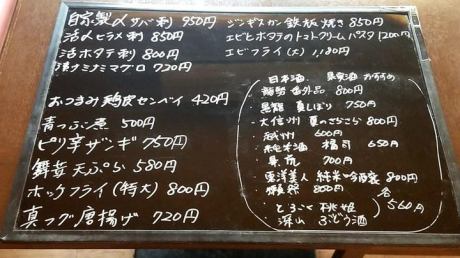 自家製〆サバ刺 950円
活〆ヒラメ刺 850円
活ホタテ刺 800円
漬けミナミマグロ 720円
おつまみ鶏皮センベイ 420円
青つぶ煮 500円
ピリ辛ザンギ 750円
舞茸天ぷら 580円
ホッケフライ(特大) 800円
真フグ唐揚げ 720円
ジンギスカン鉄板焼き 850円
エビとホタテのトマトクリームパスタ 1200円
エビフライ(大) 1,180円
日本酒、果実酒 おすすめ
番外品 800円
黒龍 夏しぼり 750円
・大信州 夏のさらさら 800円
・越州 600円
・純米酒 福司 650円
700円
・東洋美人 純米吟醸 800円
800円
・とろこく 桃姫
深山 ぶどう酒
各560円